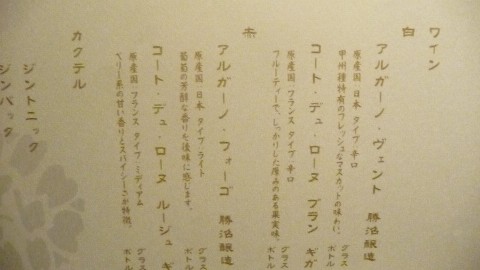 ワイン
白
アルガーノ・ヴェント 勝沼醸造
原産国 日本 タイプ 辛口
甲州種特有のフレッシュなマスカットの味わい。
グラス
ボトル
コート・デュ・ローヌ ブラン ギガ
原産国 フランス タイプ 辛口
フルーティーで、しっかりした厚みのある果実味。
グラス
ボトル
赤
アルガーノ・フォーゴ 勝沼醸造
原産国 日本 タイプ・ライト
葡萄の芳醇な香りを後味に感じます。
グラス
ボトル
コート・デュ・ローヌ ルージュ ギ
原産国 フランス タイプ・ミディアム
ベリー系の甘い香りとスパイシーさが特徴。
グラ
ボトル
カクテル
ジントニック
ジンバック